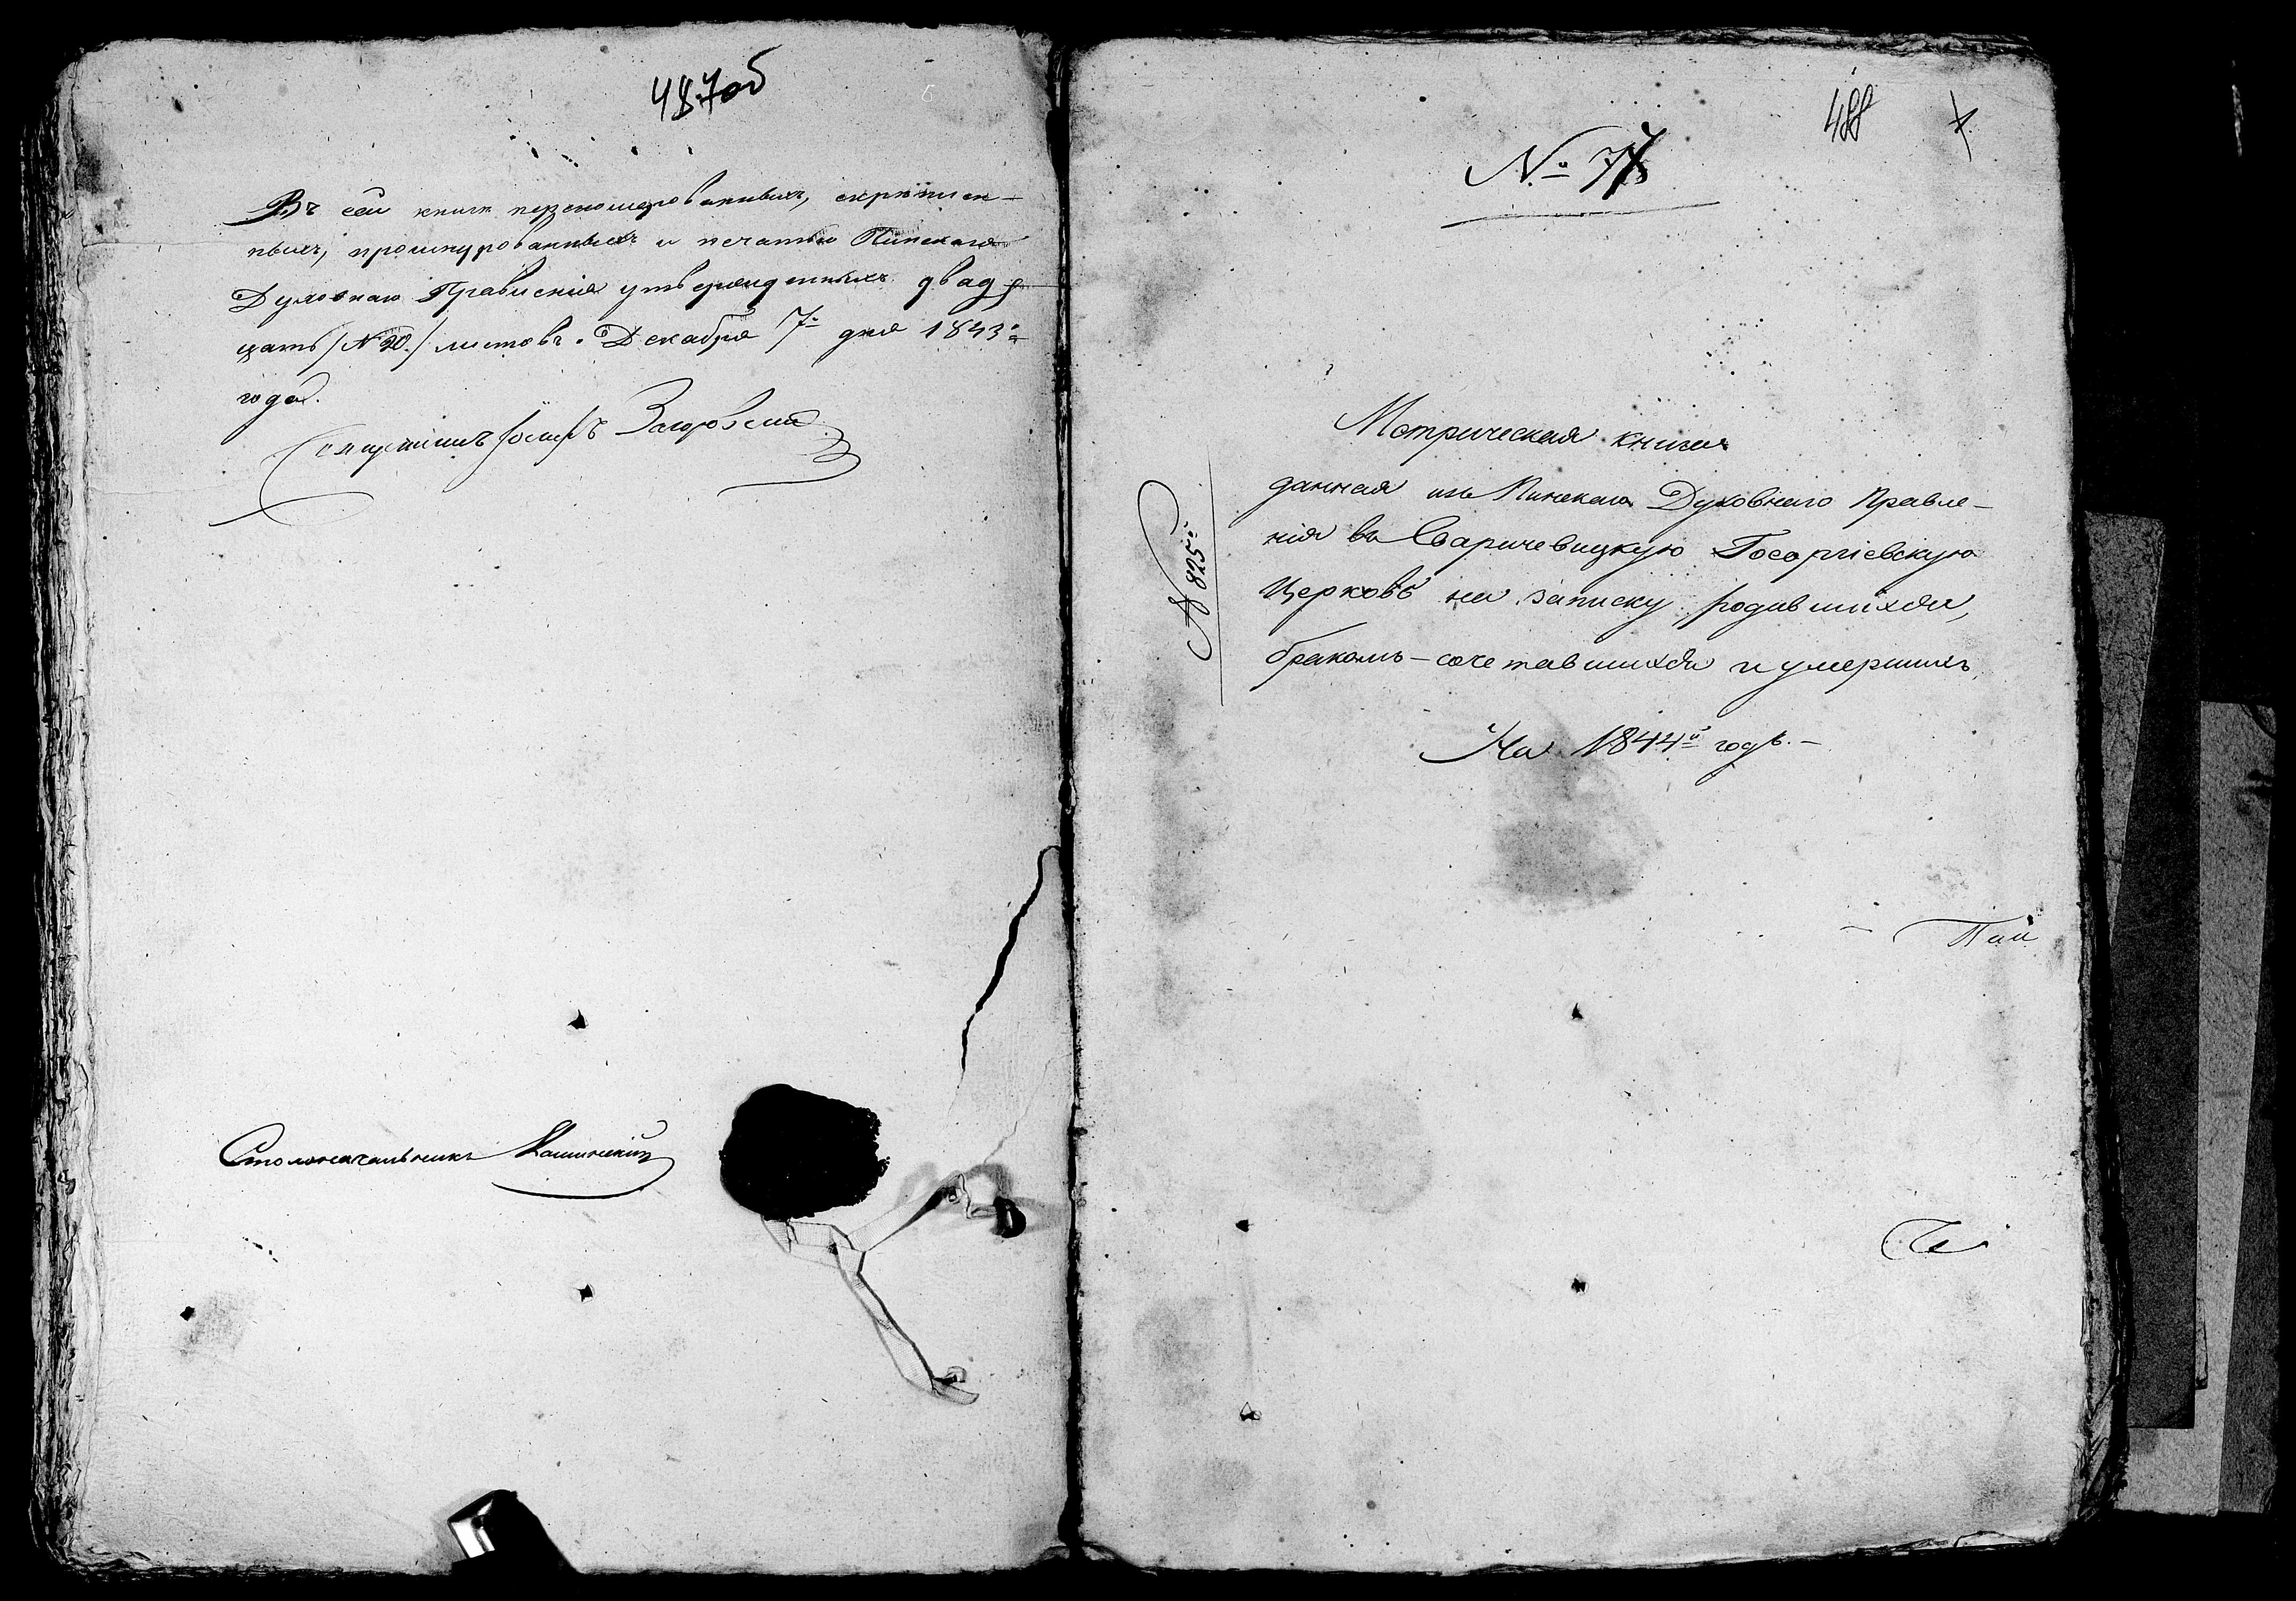 487об
Въ сей книгѣ перенумерованныхъ, скрѣплен-
ныхъ, прошнурованныхъ и печатью Пинскаго
Духовнаго Правленія утвержденныхъ двад-
цать /№ 20./ листовъ. Декабря 7го дня 1843го
года.
Іосифъ Загоровскій
Столоначальникъ
488
№ 77
Метрическая книга
данная изъ Пинскаго Духовнаго Правле-
нія въ Сваричевицкую Георгіевскую
Церковь на записку родившихся,
бракомъ-сочетавшихся и умершихъ
На 1844й годъ.-
№ 825й